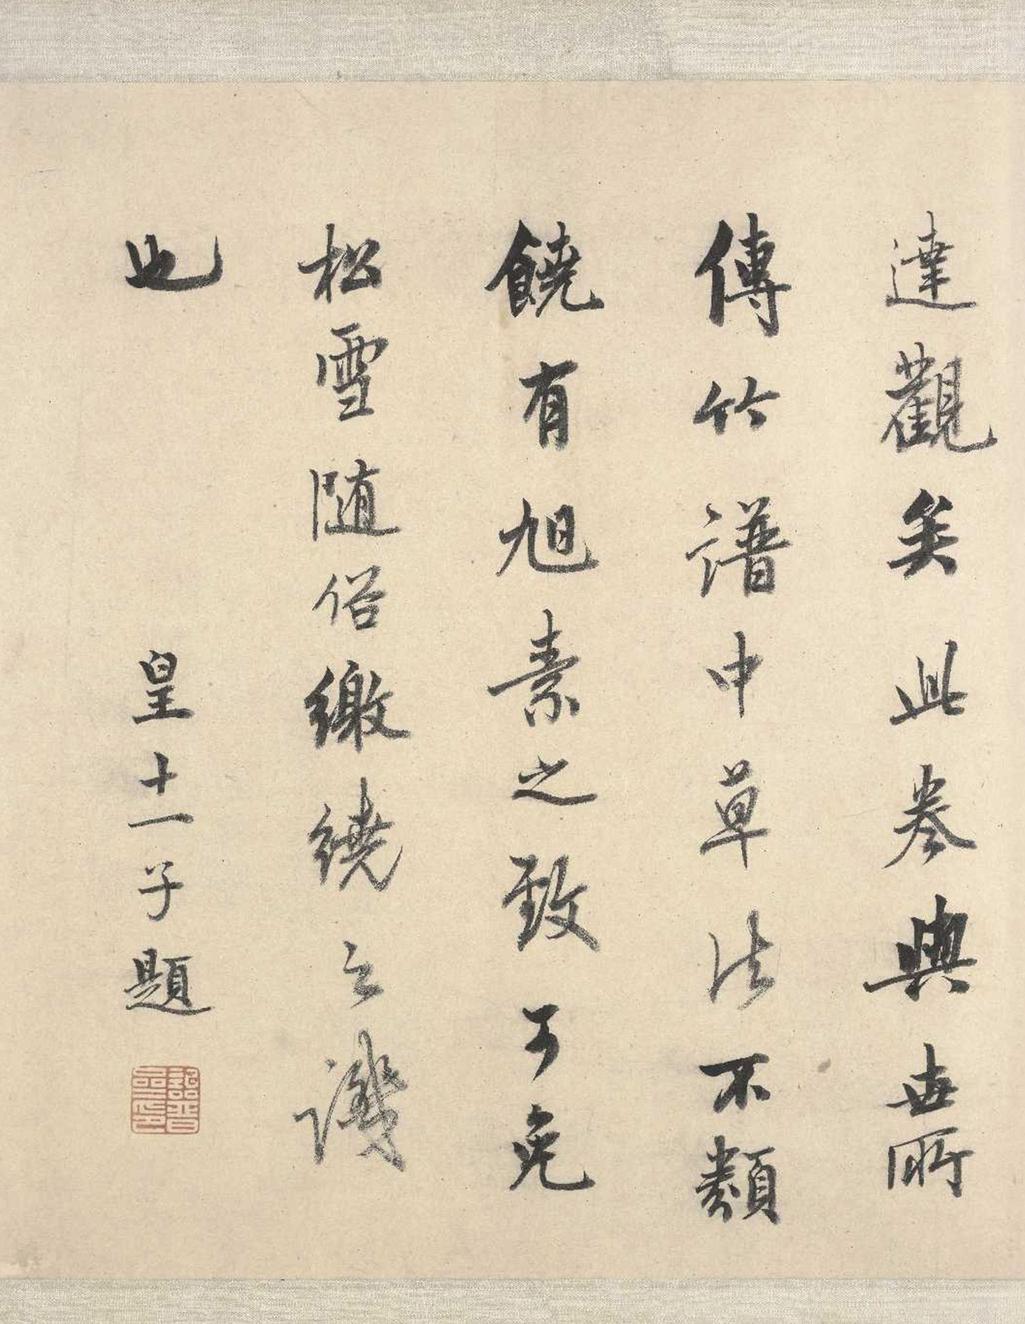 達觀矣此卷與世所
傳竹譜中草法不類
饒有旭素之致可免
松雪随俗繳繞之譏
也
皇十一子題
詒晉
齋印